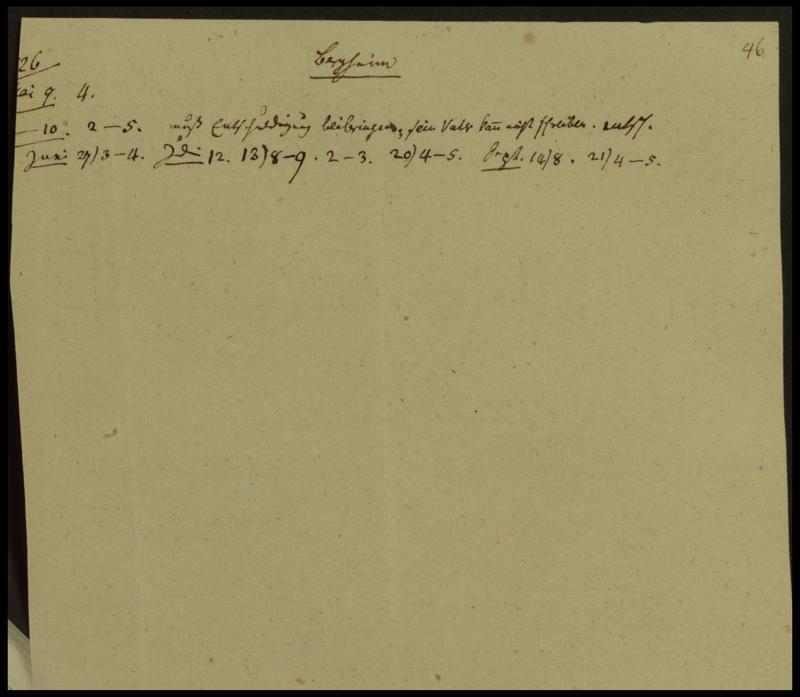 Bergheim
46
26
Mai 9. 4.
— 10. 2–5. muß Entschuldigung beibringen, sein Vater kan̄ nicht schreiben.
Juni 27) 3–4. Juli 12. 13) 8–9. 2–3. 20) 4–5. Sept. 14) 8. 21) 4–5.